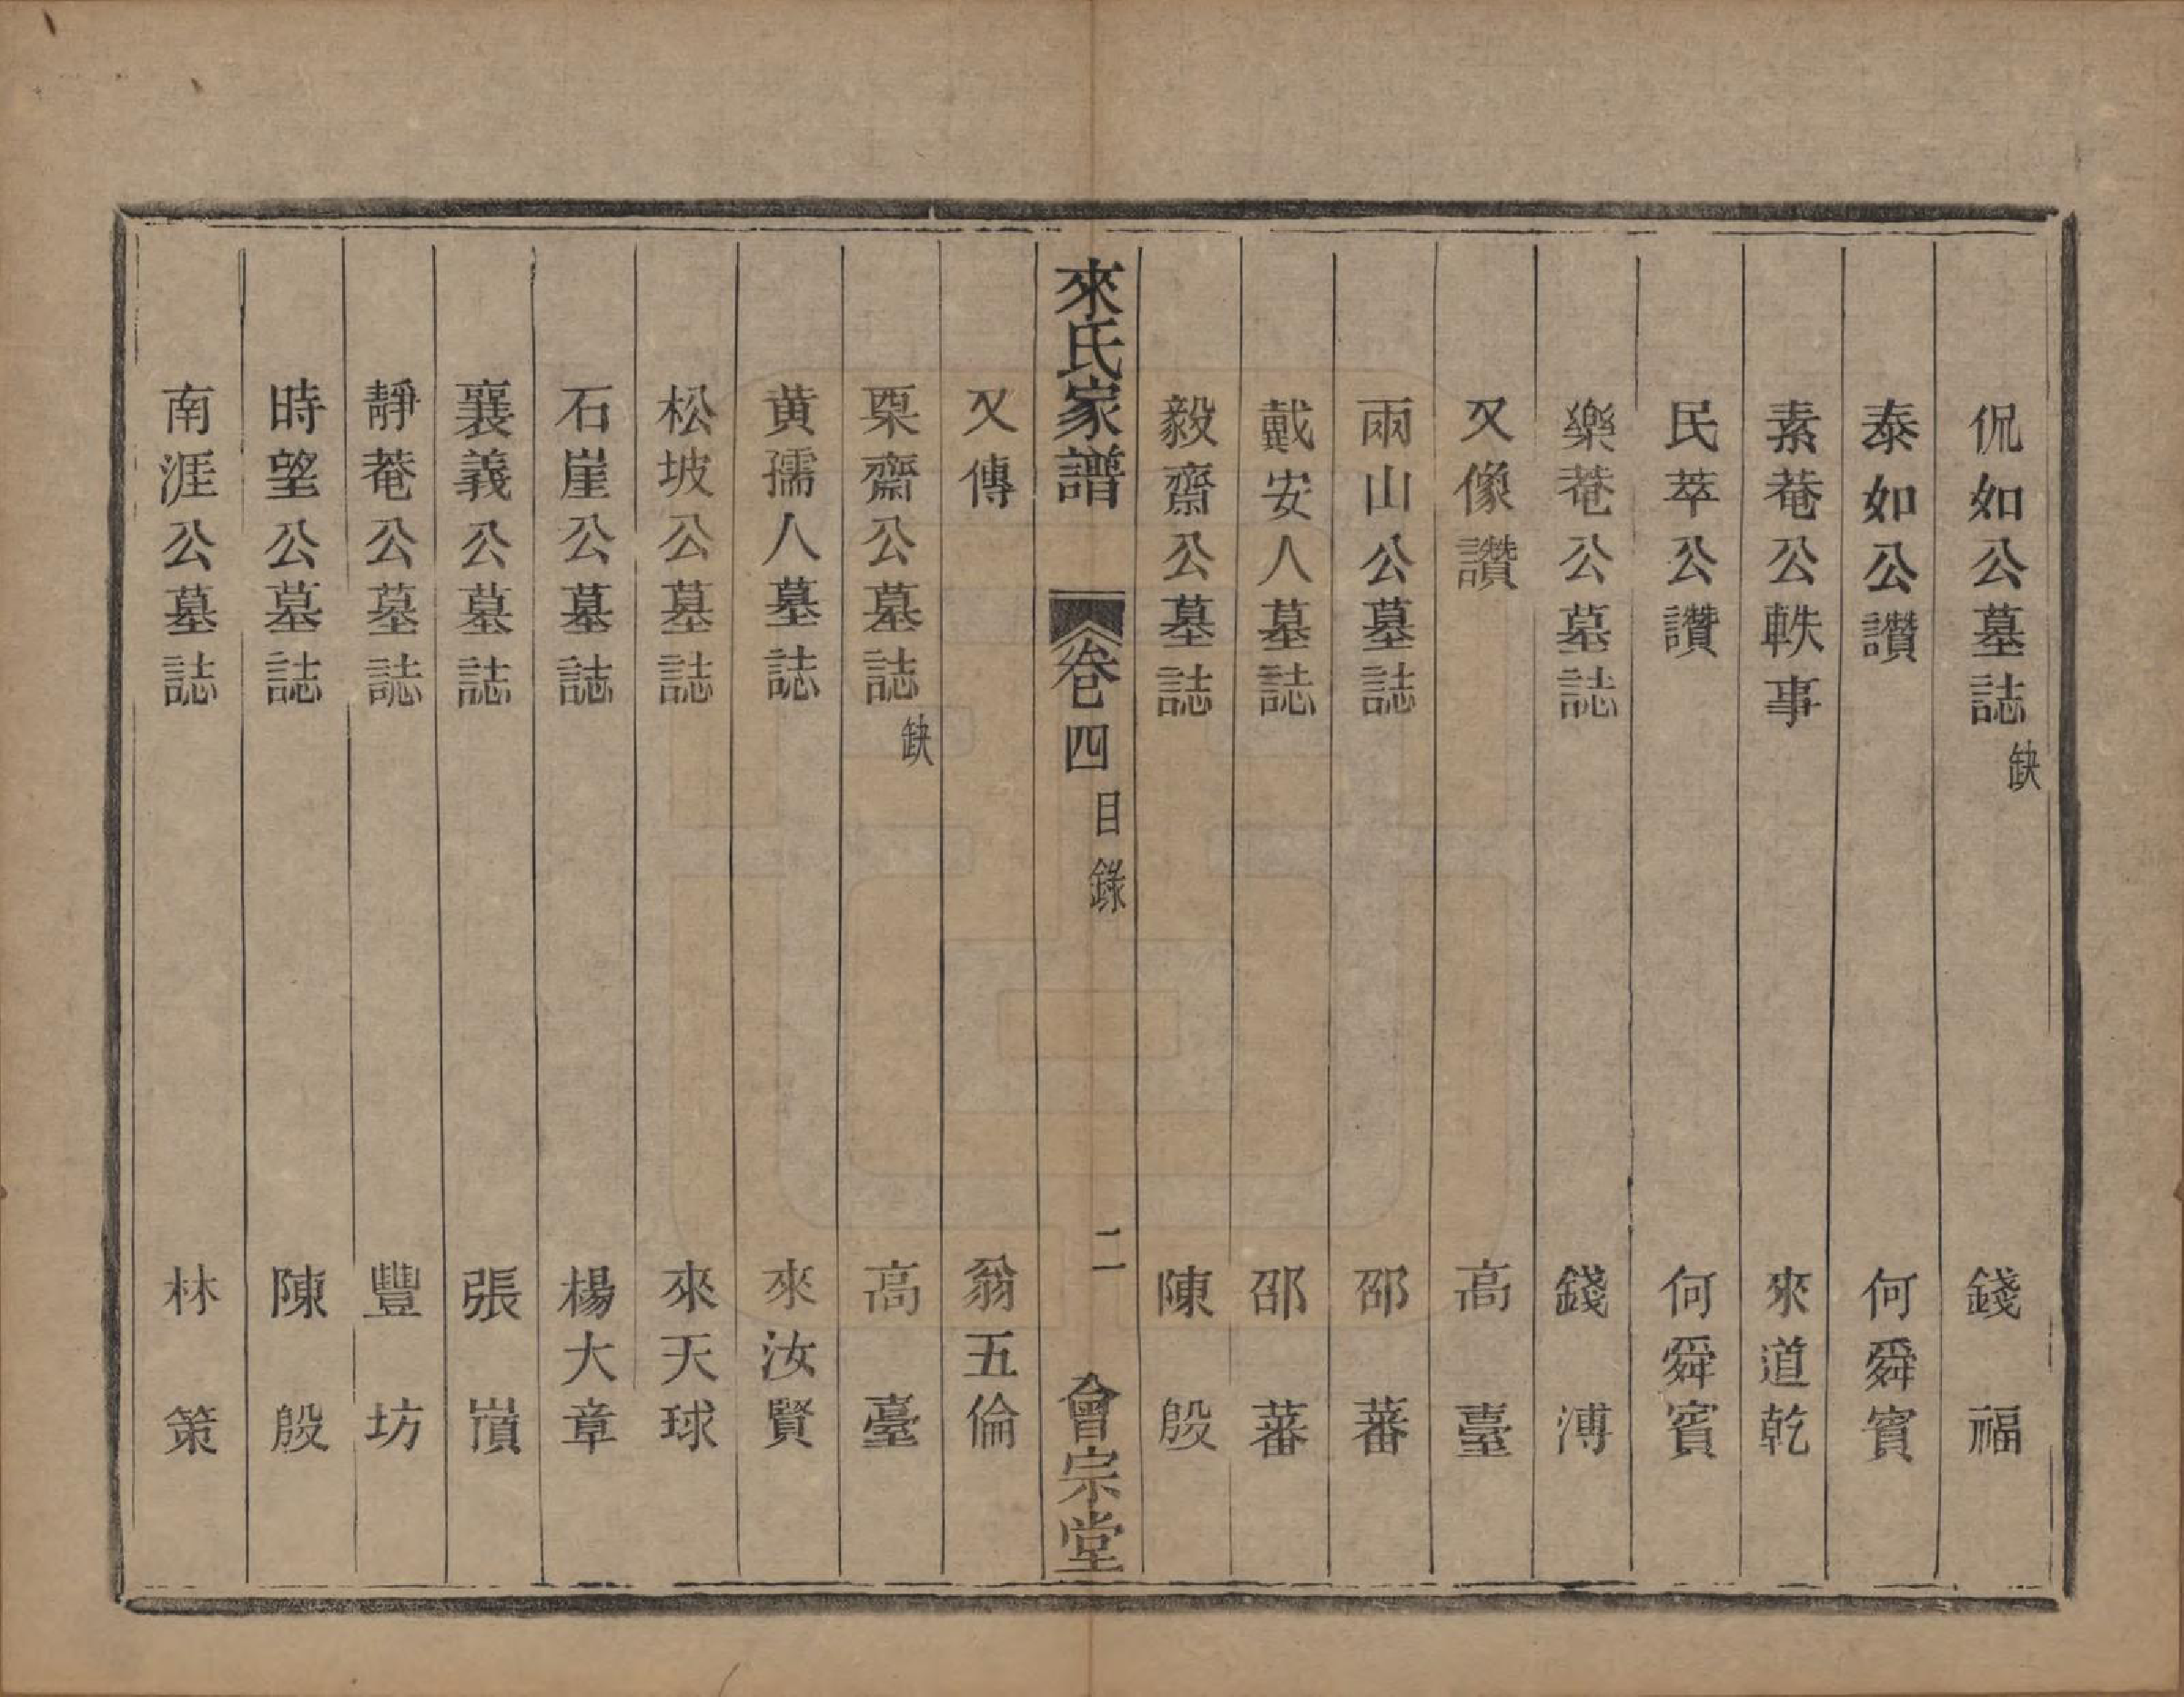 侃如公墓誌缺 錢福
泰如公讚 何舜賓
素菴公軼事 來道乾
民萃公讚 何舜賓
樂菴公墓誌 錢溥
又像讚 高臺
兩山公墓誌 邵蕃
戴安人墓誌 邵蕃
毅齋公墓誌 陳殷
來氏家譜 卷四 目錄 二 會宗堂
又傳 翁五倫
栗齋公墓誌缺 高臺
黄孺人墓誌 來汝賢
松坡公墓誌 來天球
石崖公墓誌 楊大章
襄義公墓誌 張嵿
靜菴公墓誌 豐坊
時望公墓誌 陳殷
南涯公墓誌 林策